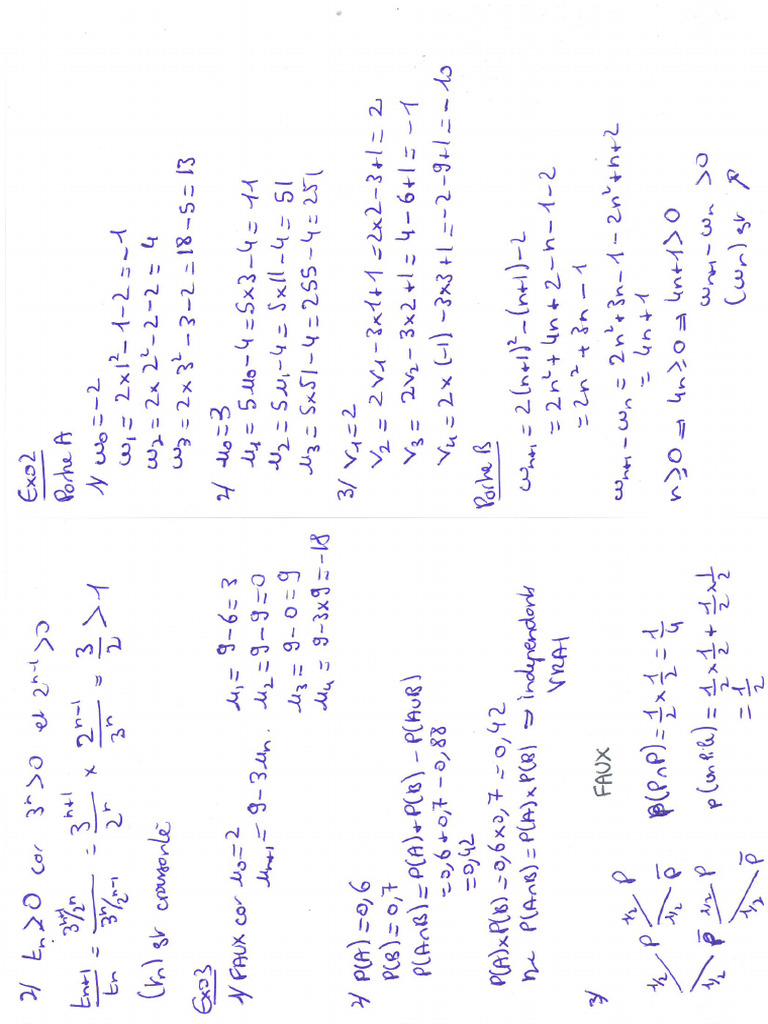 2/ tₙ ≥ 0 car 3ⁿ > 0 et 2ⁿ⁻¹ > 0
tₙ₊₁/tₙ = (3ⁿ⁺¹/2ⁿ)/(3ⁿ/2ⁿ⁻¹) = 3ⁿ⁺¹/2ⁿ × 2ⁿ⁻¹/3ⁿ = 3/2 > 1
(tₙ) st croissante
Exo3
1/ FAUX car u₀=2 u₁ = 9-6=3
uₙ₊₁ = 9-3uₙ. u₂ = 9-9=0
u₃ = 9-0=9
u₄ = 9-3×9=-18
2/ P(A)=0,6
P(B)=0,7
P(A∩B) = P(A)+P(B)-P(A∪B)
= 0,6+0,7-0,88
=0,42
P(A)×P(B)=0,6×0,7=0,42
P(A∩B)=P(A)×P(B) ⇒ independants
VRAI
3/ FAUX
1/2 P 1/2 P
1/2 P̄
1/2 P̄ 1/2 P
1/2 P̄
p(P∩P)=1/2×1/2=1/4
p(un Pile)=1/2×1/2+1/2×1/2
=1/2
Exo2
Partie A
1/ w₀=-2
w₁ = 2×1²-1-2=-1
w₂ = 2×2²-2-2=4
w₃ = 2×3²-3-2=18-5=13
2/ u₀=3
u₁ = 5u₀-4=5×3-4=11
u₂ = 5u₁-4=5×11-4=51
u₃ = 5×51-4=255-4=251
3/ v₁=2
v₂ = 2v₁-3×1+1=2×2-3+1=2
v₃ = 2v₂-3×2+1=4-6+1=-1
v₄ = 2×(-1)-3×3+1=-2-9+1=-10
Partie B
wₙ₊₁ = 2(n+1)²-(n+1)-2
= 2n²+4n+2-n-1-2
= 2n²+3n-1
wₙ₊₁-wₙ = 2n²+3n-1-2n²+n+2
= 4n+1
n≥0 ⇒ 4n≥0 ⇒ 4n+1>0
wₙ₊₁-wₙ >0
(wₙ) st ↗